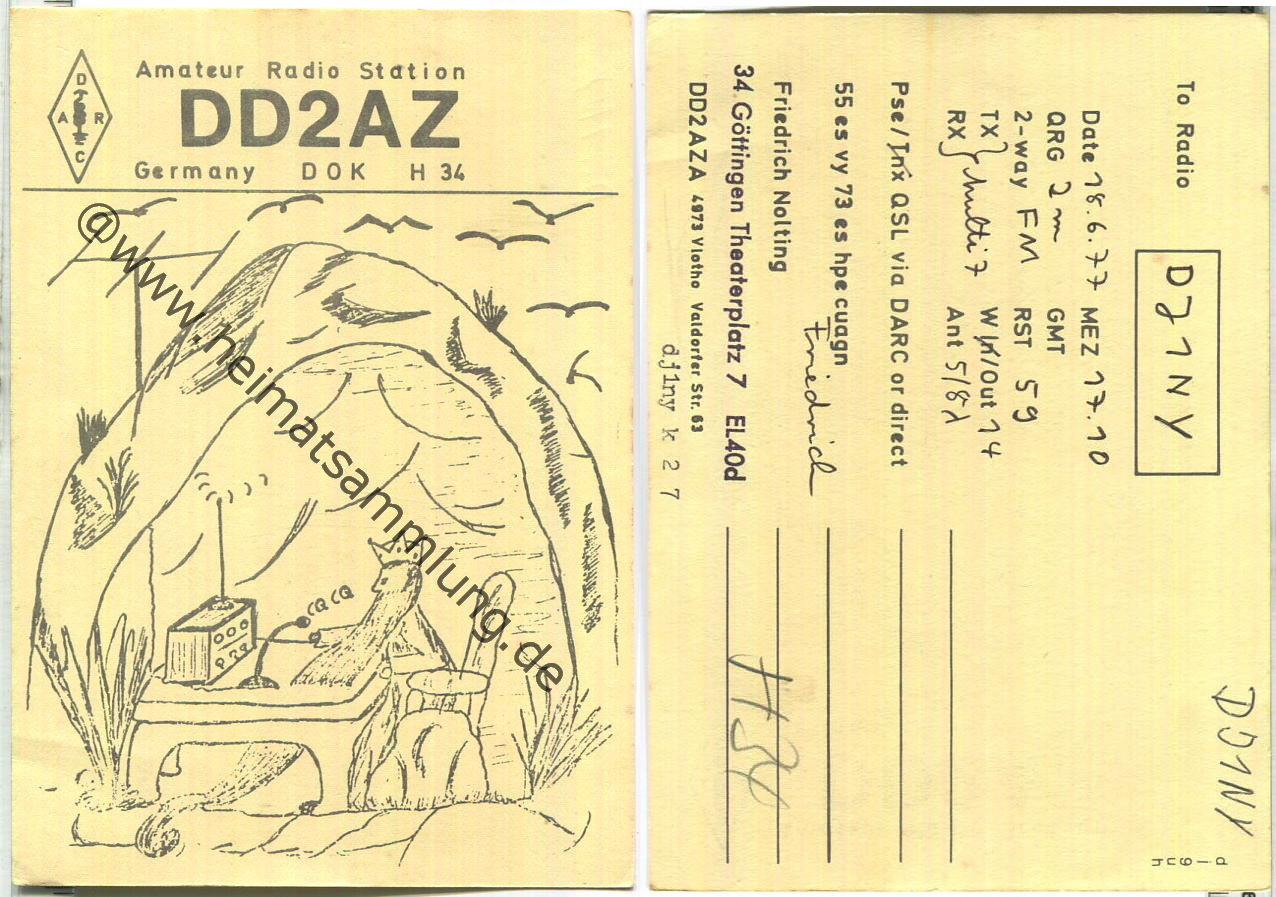 D
A R
C
Amateur Radio Station
DD2AZ
Germany DOK H 34
@www.heimatsammlung.de
CQ CQ
To Radio DJ1NY
Date 18.6.77 MEZ 17.10
QRG 2m GMT
2-way FM RST 59
TX} multi 7 W Out 14
RX Ant 5/8λ
Pse/Tnx QSL via DARC or direct
55 es vy 73 es hpe cuagn
Friedrich
Friedrich Nolting
34 Göttingen Theaterplatz 7 EL40d
DD2AZA 4973 Vlotho Valdorfer Str. 63
dj1ny k 27
H34
DJ1NY